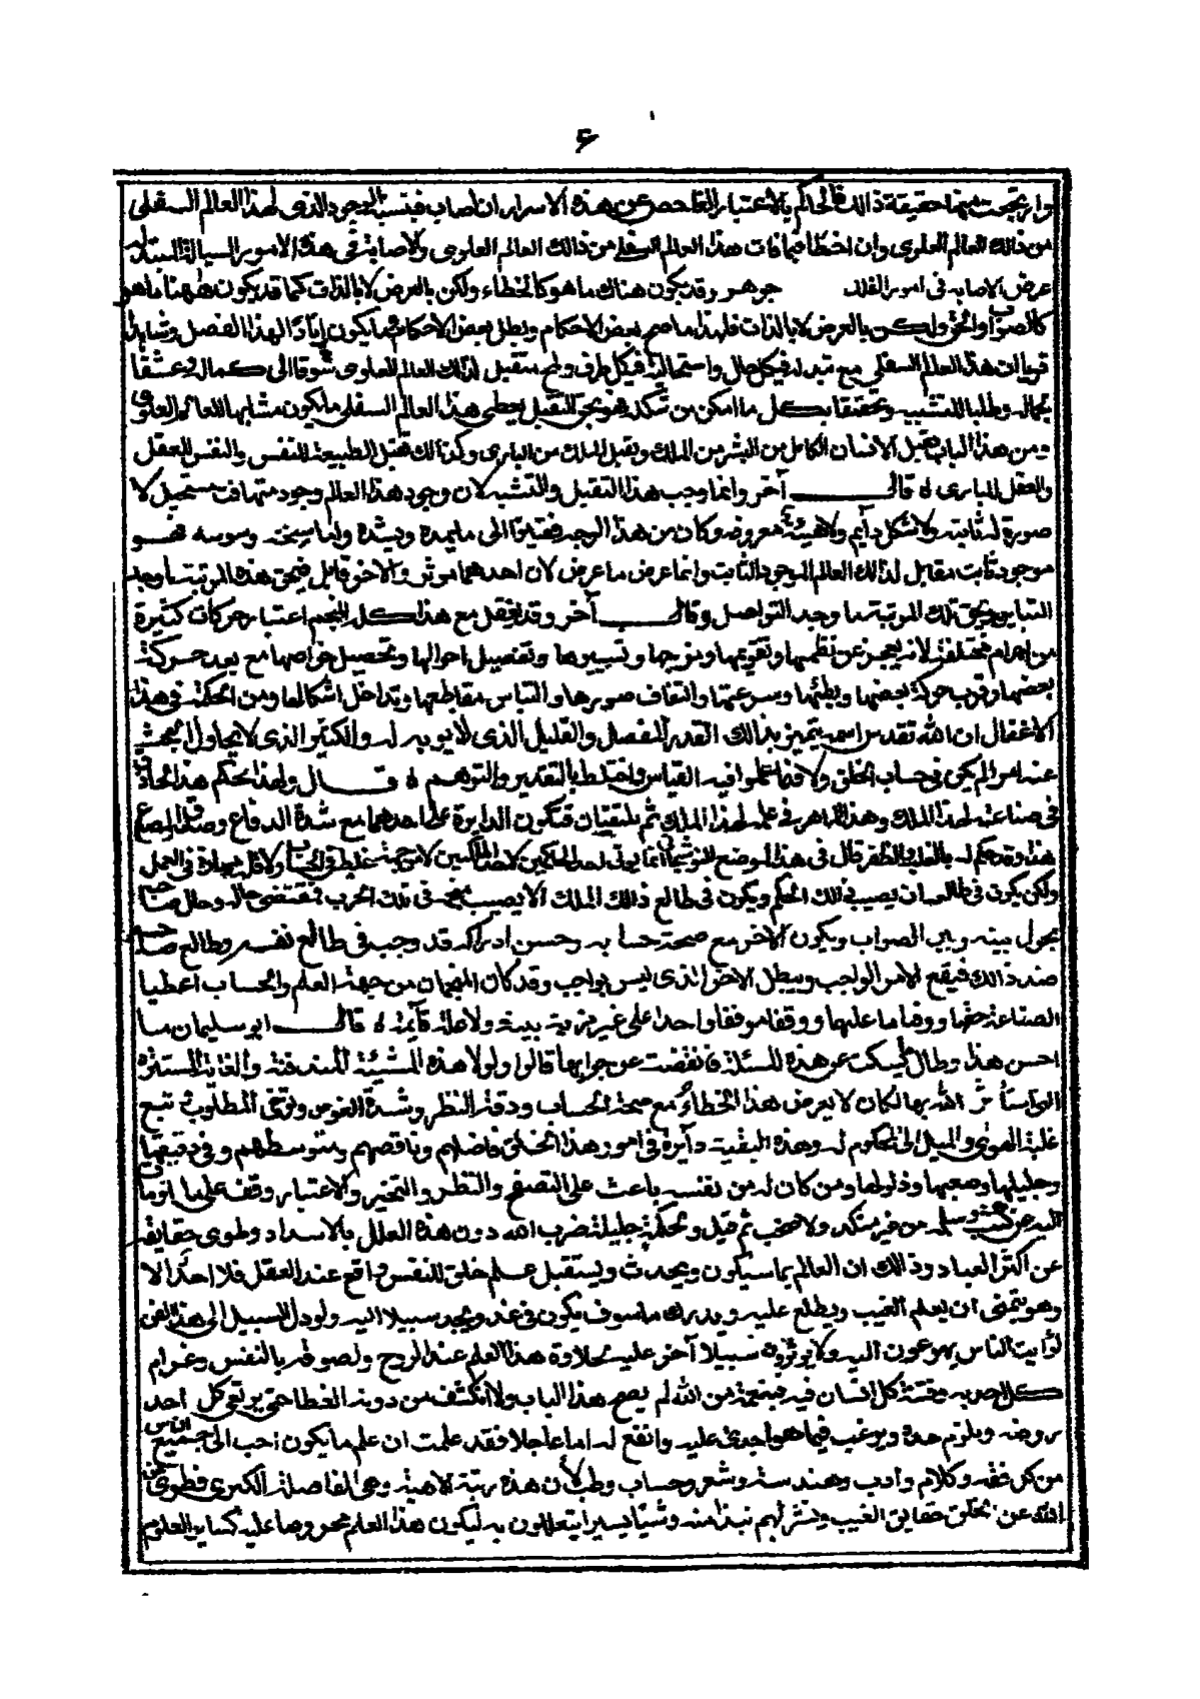 ٦
ذالك فالحاكم بالاعتبار الفاحص عن هذه الاسرار ان اصاب فبنسبة الوجود الذى لهذا العالم السفلى
من ذالك العالم العلوى وان اخطا فبما فات هذا العالم السفلى من ذالك العالم العلوى والاصابة فى هذه الامور السيالة المتبدلة
عرض الاصابه فى امور الفلك جوهر وقد يكون هناك ما هو كالخطاء ولكن بالعرض لا بالذات كما قد يكون ههنا ما هو
كالصواب والحق ولكن بالعرض لا بالذات فلهذا ما صح بعض الاحكام وبطل بعض الاحكام ومما يكون لهذا الفصل
ان هذا العالم السفلى مع تبدله فى كل حال واستحالته فى كل طرف ولمح متقبل لذلك العالم العلوى شوقا الى كماله وعشقا
بجماله وطلبا للتشبيه وتحققا بكل ما امكن من شكله فهو بحق التقبل يعطى هذا العالم السفلى ما يكون مشابها للعالم العلوى
ومن هذا الباب تقبل الانسان الكامل من البشر من الملك وتقبل الملك من البارى وكذالك تقبل الطبيعة للنفس والنفس للعقل
والعقل للبارى قال آخر وانما وجب هذا التقبل والتشبه لان وجود هذا العالم وجود متهافت مستحيل لا
صورة له ثابته ولا شكل دايم ولا هيئة معروفه وكان من هذا الوجه فقيرا الى ما يمده ويشده فهو
موجود ثابت مقابل لذلك العالم الموجود الثابت وانما عرض ما عرض لان احدهما موثر والاخر قابل فبحق هذه المرتبة ما وجد
التباين وبحق تلك المرتبة ما وجد التواصل وقال آخر وقد يغفل مع هذا كله المنجم اعتبار حركات كثيرة
من اجرام مختلفة لانه يعجز عن نظمها وتقويمها ومزجها وتسييرها وتفصيل احوالها وتحصيل خواصها مع بعد حركة
بعضها وقرب حركة بعضها وبطئها وسرعتها والتفاف صورها والتباس مقاطعها وتداخل اشكالها ومن الحكمة فى هذا
الاغفال ان الله تقدس اسمه يتمم بذالك القدر المغفل والقليل الذى لا يوبه له والكثير الذى لا يحاول البحث
عنه امرا لم يكن فى حساب الخلق ولا فيما اعملوا فيه القياس واختلط بالتقدير والتوهم قال ولهذا يحكم هذا الحاذق
فى صناعته لهذا الملك وهذا الماهر فى علمه لهذا الملك ثم يلتقيان فتكون الدايرة على احدهما مع شدة الدفاع وصدق المصاع
هذا وقد حكم له بالغلب والظفر قال فى هذا الموضع النوشجانى انما يوتى احد الحاكمين لاحد الملكين لا من جهة غلط فى الحساب ولا قلة مهارة فى العمل
ولكن يكون فى طالعه ان يصيب فى ذلك الحكم ويكون فى طالع ذلك الملك الا يصيب منجمه فى تلك الحرب فمقتضى حاله وحال صاحبه
يحول بينه وبين الصواب ويكون الاخر مع صحة حسابه وحسن ادراكه قد وجب فى طالع نفسه وطالع صاحبه
ضد ذالك فيقع الامر الواجب ويبطل الاخر الذى ليس بواجب وقد كان المنجمان من جهة العلم والحساب اعطيا
الصناعة حقها ووفيا ما عليها ووقفا موقفا واحدا على غير مزية بينة ولا علة قائمة قال ابو سليمان ما
احسن هذا قالوا ولولا هذه المشيئة المندفنة والغاية المستترة
التى استاثر الله بها لكان لا يعرض هذا الخطاء مع صحة الحساب ودقة النظر وشدة الغوص وتوقى المطلوب تتبع
غلبة الهوى والميل الى المحكوم له وهذه البقية دآيرة فى امور هذا الخلق فاضلهم وناقصهم ومتوسطهم وفى دقيقها
وجليلها وصعبها وذلولها ومن كان له من نفسه باعث على التصفح والنظر والتخير والاعتبار وقف على ما اومات
اليه عن كثب وسلمه من غير منكر ولا صخب ثم قيل ولحكمة جليلة ضرب الله دون هذه العلل بالاسداد وطوى حقايقه
عن اكثر العباد وذالك ان العالم بما سيكون ويحدث ويستقبل علم خلق للنفس واقع عند العقل فلا احد الا
وهو يتمنى ان يعلم الغيب ويطلع عليه ويدرك ما سوف يكون فى غد ويجد سبيلا اليه ولو دل السبيل الى هذا الفن
لرأيت الناس يهرعون اليه ولا يوثرون سبيلا آخر عليه لحلاوة هذا العلم عند الروح ولصوقه بالنفس وغرام
كل احد به وفتنة كل انسان فيه فبنعمة من الله لم يصح هذا الباب ولا انكشف من دونه الغطا حتى يرتعى كل احد
روضه ويلزم حده ويرغب فيما هو اجدى عليه وانفع له اما عاجلا فقد علمت ان علم ما يكون احب الى جميع الناس
من كل فقه وكلام وادب وهندسة وشعر وحساب وطب لان هذه رتبة الاهية وهى الفاصلة الكبرى فطوى
الله عن الخلق حقايق الغيب ونشر لهم نبذا منه وشيئا يسيرا يتعللون به ليكون هذا العلم محروصا عليه كساير العلوم